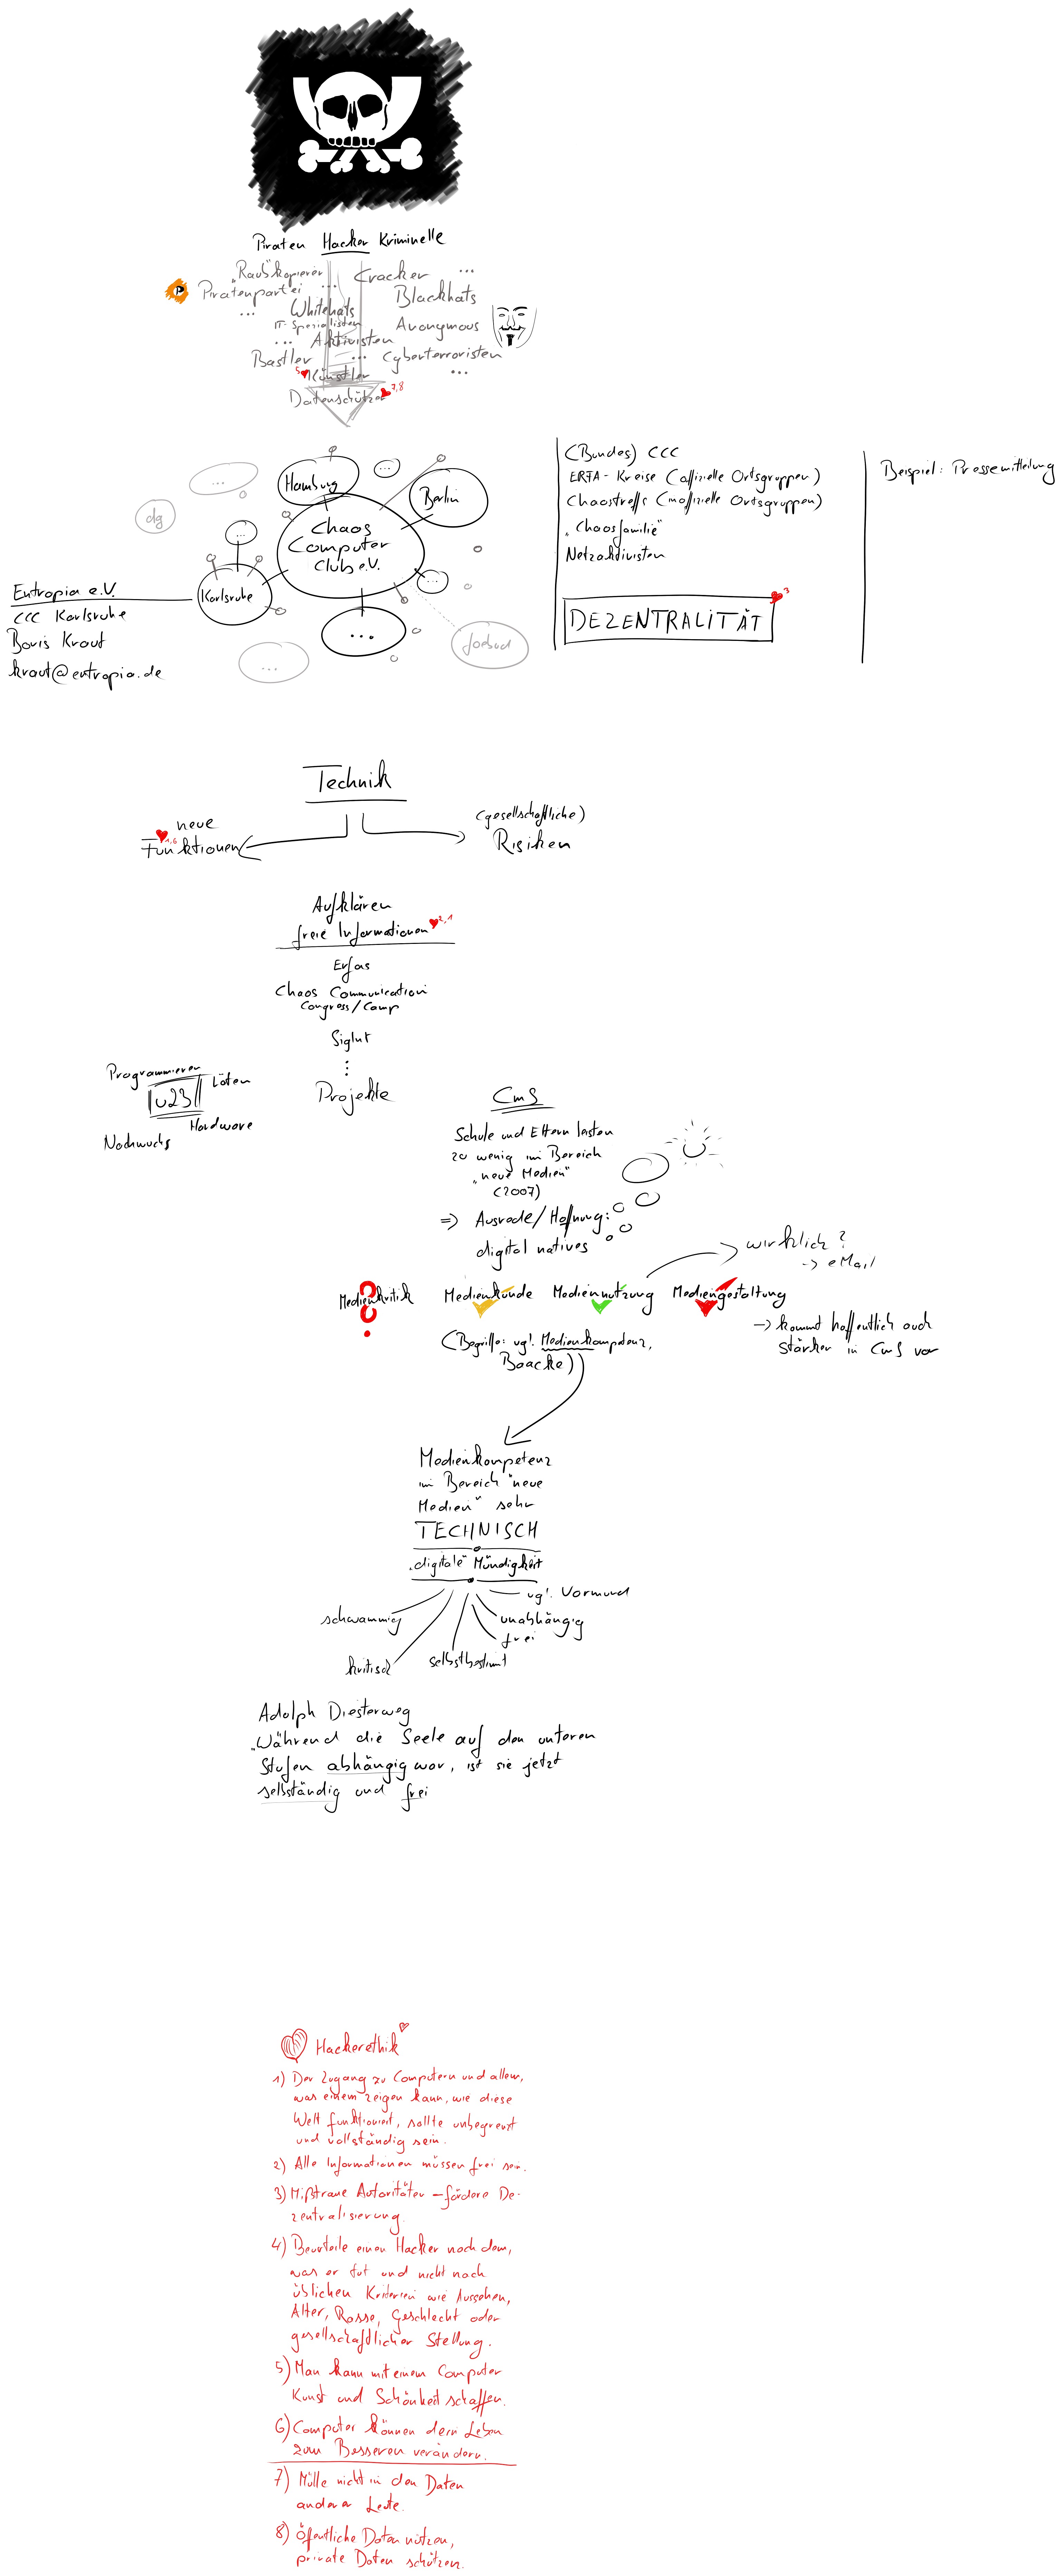 Piraten Hacker Kriminelle
"Raub"kopierer
Cracker ...
Piratenpartei ...
Blackhats
... Whitehats
IT-Spezialisten
Anonymous
... Aktivisten
Bastler ... Cyberterroristen
5 Künstler ...
Datenschützer 7,8
...
Hamburg
...
Berlin
dg
...
Chaos
Computer
Club e.V.
Karlsruhe
...
...
...
foebud
Entropia e.V.
CCC Karlsruhe
Boris Kraut
kraut@entropia.de
(Bundes) CCC
ERFA-Kreise (offizielle Ortsgruppen)
Chaostreffs (inoffizielle Ortsgruppen)
"Chaosfamilie"
Netzaktivisten
DEZENTRALITÄT 3
Beispiel: Pressemitteilung
Technik
neue
Funktionen 1,6
(gesellschaftliche)
Risiken
Aufklären
freie Informationen 2,1
Erfas
Chaos Communication
Congress/Camp
SigInt
...
Projekte
Programmieren
Löten
u23
Hardware
Nachwuchs
CmS
Schule und Eltern leisten
zu wenig im Bereich
"neue Medien"
(2007)
=> Ausrede/Hoffnung:
digital natives
wirklich?
-> eMail
Medienkritik Medienkunde Mediennutzung Mediengestaltung
?
-> kommt hoffentlich auch
stärker in CmS vor
(Begriffe: vgl. Medienkompetenz,
Baacke)
Medienkompetenz
im Bereich "neue
Medien" sehr
TECHNISCH
"digitale" Mündigkeit
vgl. Vormund
schwammig
unabhängig
frei
selbstbestimt
kritisch
Adolph Diesterweg
"Während die Seele auf den unteren
Stufen abhängig war, ist sie jetzt
selbständig und frei
Hackerethik
1) Der Zugang zu Computern und allem,
was einem zeigen kann, wie diese
Welt funktioniert, sollte unbegrenzt
und vollständig sein.
2) Alle Informationen müssen frei sein.
3) Mißtraue Autoritäten – fördere De-
zentralisierung.
4) Beurteile einen Hacker nach dem,
was er tut und nicht nach
üblichen Kriterien wie Aussehen,
Alter, Rasse, Geschlecht oder
gesellschaftlicher Stellung.
5) Man kann mit einem Computer
Kunst und Schönheit schaffen.
6) Computer können dein Leben
zum Besseren verändern.
7) Mülle nicht in den Daten
anderer Leute.
8) Öffentliche Daten nützen,
private Daten schützen.